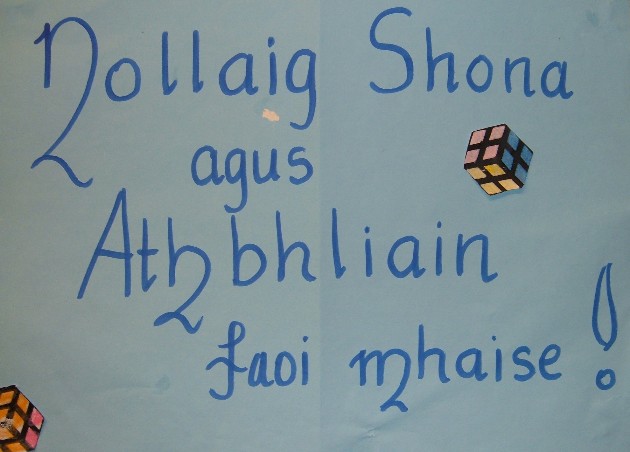 Nollaig Shona
agus
Athbhliain
faoi mhaise!